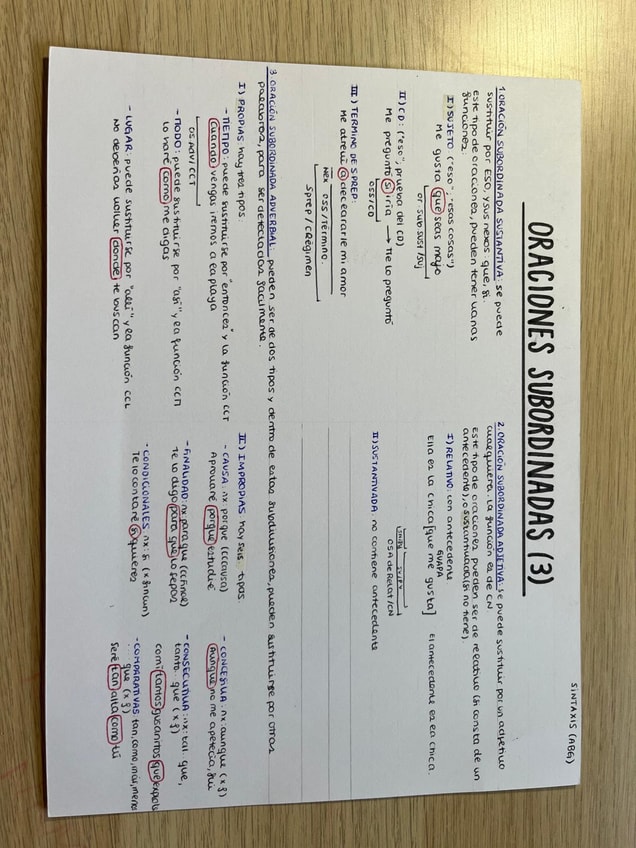 SINTAXIS (ABG)
ORACIONES SUBORDINADAS (3)
1. ORACIÓN SUBORDINADA SUSTANTIVA: se puede
sustituir por ESO, y sus nexos que, si.
este tipo de oraciones, pueden tener varias
funciones.
I) SUJETO ("eso"; "esas cosas")
Me gusta que seas majo
or sub sust/suj
II) CD: ("eso", prueba del CD)
Me preguntó si iría → Me lo preguntó
OSS/CD
III) TERMINO DE SPREP:
Me atreví a decearte mi amor
nex oss/Término.
SPREP/CRégimen
2. ORACIÓN SUBORDINADA ADJETIVA: se puede sustituir por un adjetivo
cualquiera. La función es de CN
este tipo de oraciones pueden ser de relativo (si consta de un
antecedente), o sustantivada (si no tiene)
I) RELATIVO con antecedente
GUAPA
Ella es la chica [que me gusta] El antecedente es la chica
OSA de Relat/CN
II) SUSTANTIVADA: no contiene antecedente
3. ORACIÓN SUBORDINADA ADVERBIAL: pueden ser de dos tipos y dentro de estas subdivisiones, pueden sustituirse por otras
palabras, para ser detectadas facilmente.
I) PROPIAS hay tres tipos:
- TIEMPO: puede sustituirse por "entonces" y la función CCT
Cuando vengas iremos a la playa
OS ADV/CCT
- MODO: puede sustituirse por "así" y la función CCM
Lo haré como me digas
- LUGAR: puede sustituirse por "allí" y la función CCL
No deberías volver donde te buscan
II) IMPROPIAS hay seis tipos.
- CAUSA: nx porque (CCcausa)
Aprobaré porque estudié
- FINALIDAD: nx para que (ccfinal)
Te lo digo para que lo sepas
- CONDICIONALES: nx: si (x función)
Te lo contaré si quieres
- CONCESIVA: nx: aunque (x f)
Aunque no me apetecía, fui
- CONSECUTIVA: nx: tal que,
tanto que (x f)
comí tantos gusanitos que explote
- COMPARATIVAS tan, como, más, menos
que (x f)
Seré tan alta como tú